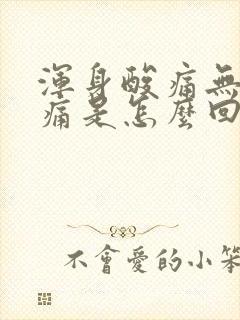 渾身酸痛無
痛是怎麼回
不會愛的小笨